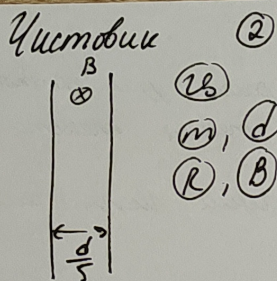 Чистовик ②
B
⊗
m, d
R, B
d